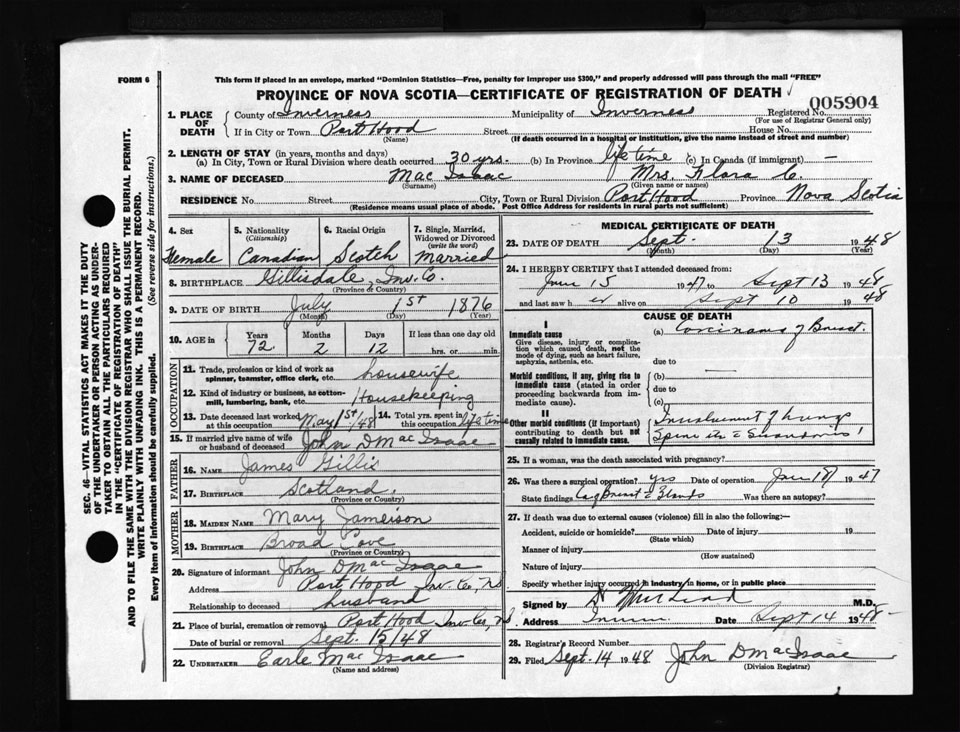 FORM 6
This form if placed in an envelope, marked "Dominion Statistics—Free, penalty for improper use $300," and properly addressed will pass through the mail "FREE"
PROVINCE OF NOVA SCOTIA—CERTIFICATE OF REGISTRATION OF DEATH
005904
1. PLACE OF DEATH
County of Inverness Municipality of Inverness Registered No.
(For use of Registrar General only)
If in City or Town Port Hood Street House No.
(Name) (If death occurred in a hospital or institution, give the name instead of street and number)
2. LENGTH OF STAY (in years, months and days)
(a) In City, Town or Rural Division where death occurred 30 yrs. (b) In Province life time (c) In Canada (if immigrant) —
3. NAME OF DECEASED Mac Isaac Mrs. Flora C.
(Surname) (Given name or names)
RESIDENCE No. Street City, Town or Rural Division Port Hood Province Nova Scotia
(Residence means usual place of abode. Post Office Address for residents in rural parts not sufficient)
4. Sex Female
5. Nationality (Citizenship) Canadian
6. Racial Origin Scotch
7. Single, Married, Widowed or Divorced (write the word) Married
8. BIRTHPLACE Gillisdale, Inv. Co.
(Province or Country)
9. DATE OF BIRTH July 1st 1876
(Month) (Day) (Year)
10. AGE in Years 72 Months 2 Days 12 If less than one day old hrs. or min.
OCCUPATION
11. Trade, profession or kind of work as spinner, teamster, office clerk, etc. housewife
12. Kind of industry or business, as cotton-mill, lumbering, bank, etc. Housekeeping
13. Date deceased last worked at this occupation May 1st/48 14. Total yrs. spent in this occupation life time
15. If married give name of wife or husband of deceased John D MacIsaac
FATHER
16. NAME James Gillis
17. BIRTHPLACE Scotland.
(Province or Country)
MOTHER
18. MAIDEN NAME Mary Jameison
19. BIRTHPLACE Broad Cove
(Province or Country)
20. Signature of informant John D MacIsaac
Address Port Hood Inv. Co, N.S.
Relationship to deceased husband
21. Place of burial, cremation or removal Port Hood Inv. Co, N.S.
Date of burial or removal Sept. 15/48
22. UNDERTAKER Earle MacIsaac
(Name and address)
MEDICAL CERTIFICATE OF DEATH
23. DATE OF DEATH Sept. 13 1948
(Month) (Day) (Year)
24. I HEREBY CERTIFY that I attended deceased from:
15 1947 to Sept 13 1948
and last saw h er alive on Sept 10 1948
CAUSE OF DEATH
I
Immediate cause (a) Carcinama of Breast.
Give disease, injury or complication which caused death, not the mode of dying, such as heart failure, asphyxia, asthenia, etc.
due to
Morbid conditions, if any, giving rise to immediate cause (stated in order proceeding backwards from immediate cause).
(b) —
due to
(c)
II
Other morbid conditions (if important) contributing to death but not causally related to immediate cause.
of lungs
Spine
25. If a woman, was the death associated with pregnancy?
26. Was there a surgical operation? yes Date of operation 18/ 1947
State findings Was there an autopsy?
27. If death was due to external causes (violence) fill in also the following:—
Accident, suicide or homicide? Date of injury 19
(State which)
Manner of injury
(How sustained)
Nature of injury
Specify whether injury occurred in industry, in home, or in public place
Signed by M.D.
Address Date Sept 14 1948
28. Registrar's Record Number
29. Filed Sept. 14 1948 John D MacIsaac
(Division Registrar)
SEC. 46—VITAL STATISTICS ACT MAKES IT THE DUTY
OF THE UNDERTAKER OR PERSON ACTING AS UNDER-
TAKER TO OBTAIN ALL THE PARTICULARS REQUIRED
IN THE "CERTIFICATE OF REGISTRATION OF DEATH"
AND TO FILE THE SAME WITH THE DIVISION REGISTRAR WHO SHALL ISSUE THE BURIAL PERMIT.
WRITE PLAINLY WITH UNFADING INK. THIS IS A PERMANENT RECORD.
Every item of information should be carefully supplied. (See reverse side for instructions.)